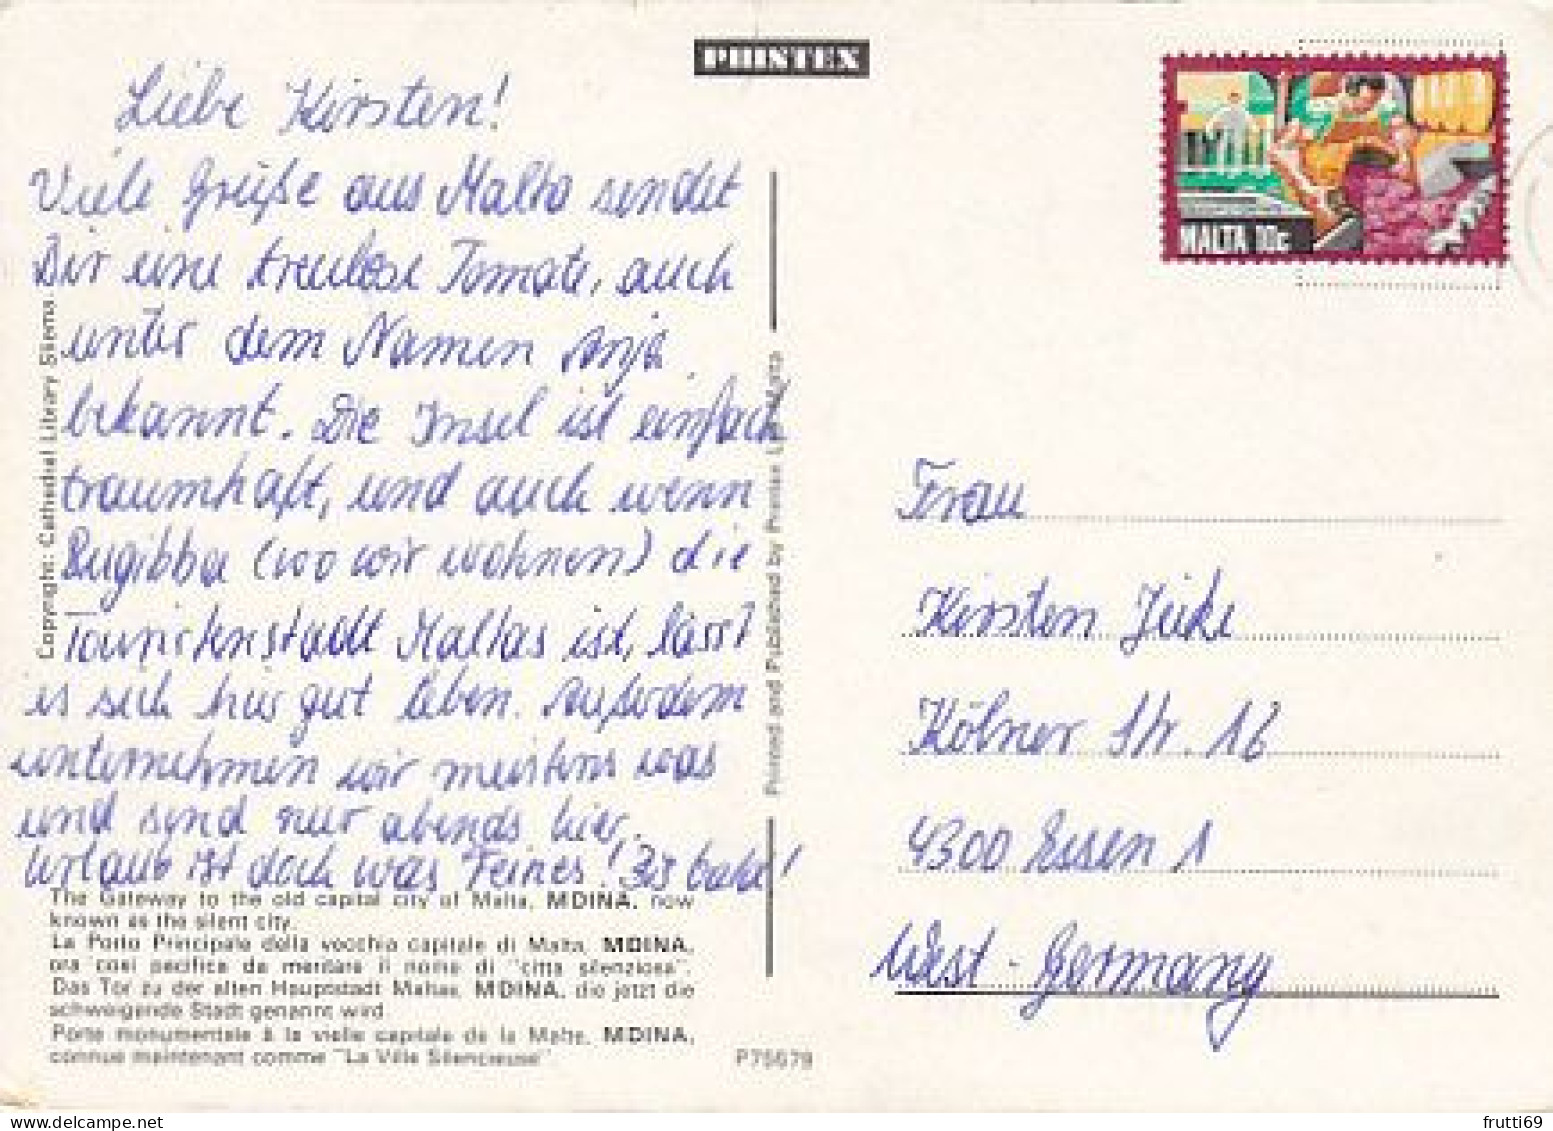 PRINTEX
MALTA 10c
Liebe Kirsten!
Viele Grüße aus Malta sendet
Dir eine treulose Tomate, auch
unter dem Namen Anja
bekannt. Die Insel ist einfach
traumhaft, und auch wenn
Bugibba (wo wir wohnen) die
Touristenstadt Maltas ist, lässt
es sich hier gut leben. Außerdem
unternehmen wir meistens was
und sind nur abends hier.
Urlaub ist doch was Feines! Bis bald!
The Gateway to the old capital city of Malta, MDINA, now
known as the silent city.
La Porta Principale della vecchia capitale di Malta, MDINA,
ora cosi pacifica da meritare il nome di "citta silenziosa".
Das Tor zu der alten Hauptstadt Maltas, MDINA, die jetzt die
schweigende Stadt genannt wird.
Porte monumentale à la vielle capitale de la Malte, MDINA,
connue maintenant comme "La Ville Silencieuse"
P75679
Copyright: Cathedral Library Sliema
Printed and Published by Printex Malta
Frau
Kirsten
Kölner Str. 16
4300 Essen 1
West-Germany
frutti69